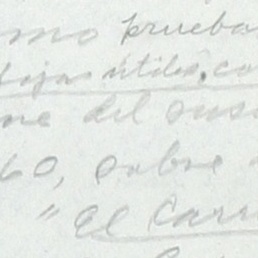 mo prueba
hojas útiles, co
me del sus
60, sobre
"El Carr